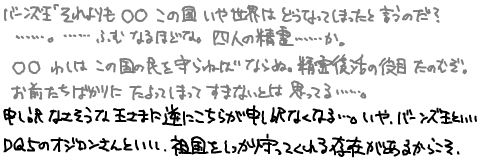 バーンズ王「それよりも ○○ この国 いや世界は どうなってしまったと言うのだ?
……。 …… ふむ なるほどな。 四人の精霊……か。
○○ わしは この国の民を守らねば ならぬ。 精霊復活の役目 たのむぞ。
お前たちばかりに たよってしまって すまないとは 思ってる……。
申し訳なさそうな王さまに逆にこちらが申し訳なくなる…。いや、バーンズ王といい
DQ5のオジロンさんといい、祖国をしっかり守ってくれる存在があるからこそ。